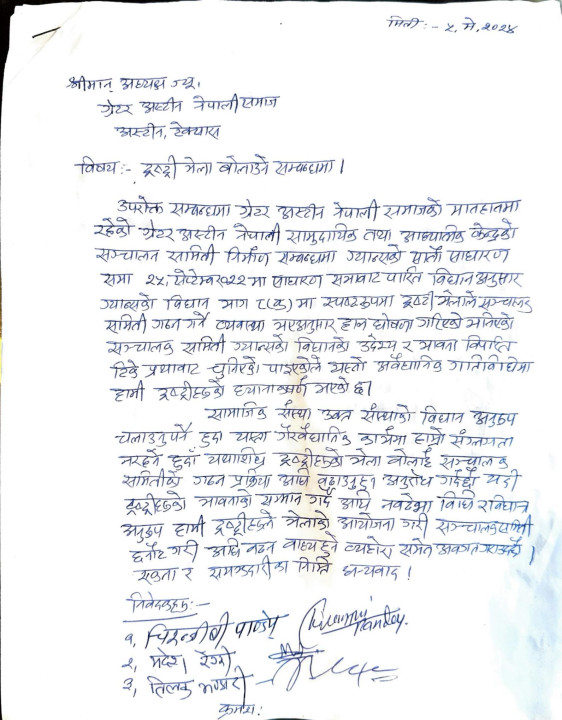 मिती :- ५, मे, २०२४
श्रीमान् अध्यक्ष ज्यू,
ग्रेटर अस्टीन नेपाली समाज
अस्टीन, टेक्सास
विषय :- ट्रष्टी भेला बोलाउने सम्बन्धमा ।
उपरोक्त सम्बन्धमा ग्रेटर अस्टीन नेपाली समाजको मातहातमा
रहेको ग्रेटर अस्टीन नेपाली सामुदायिक तथा आध्यात्मिक केन्द्रको
सञ्चालन समिति निर्माण सम्बन्धमा ग्यान्सको साधारण
सभा २५, सेप्टेम्बर २०२२ मा साधारण सभाबाट पारित विधान अनुसार
ग्यान्सको विधान भाग ८(क) मा स्पष्टरूपमा ट्रष्टी भेलाले सञ्चालक
समिती गठन गर्ने व्यवस्था भएअनुसार हाल घोषणा गरिएको भनिएको
सञ्चालक समिती ग्यान्सको विधानको उद्देश्य र भावना विपरित
टिके प्रथाबाट चुनिएको पाइएकोले यस्तो अवैधानिक गतिविधिमा
हामी ट्रष्टीहरुको ध्यानाकर्षण भएको छ।
सामाजिक संस्था उक्त संस्थाको विधान अनुरुप
चलाउनुपर्ने हुदा यस्ता गैरवैधानिक कार्यमा हाम्रो संलग्नता
नरहने हुदाँ यथाशिघ्र ट्रष्टीहरुको भेला बोलाई सञ्चालक
समितीको गठन प्रक्रिया अघि बढाउनुहुन अनुरोध गर्दछौं यदी
ट्रष्टीहरुको भावनाको सम्मान गर्दै अघि नबढेमा विधि र विधान
अनुरुप हामी ट्रष्टीहरुले भेलाको आयोजना गरी सञ्चालक समिती
छनौट गरी अघि बढ्न बाध्य हुने व्यहोरा समेत अवगत गराउदछौं ।
एकता र समझदारीका निम्ति धन्यवाद !
निवेदकहरु :-
१, चिरन्जीवी पाण्डेय Chiranjivi Pandey.
२, महेश रेग्मी
३, तिलक भण्डारी
क्रमश: